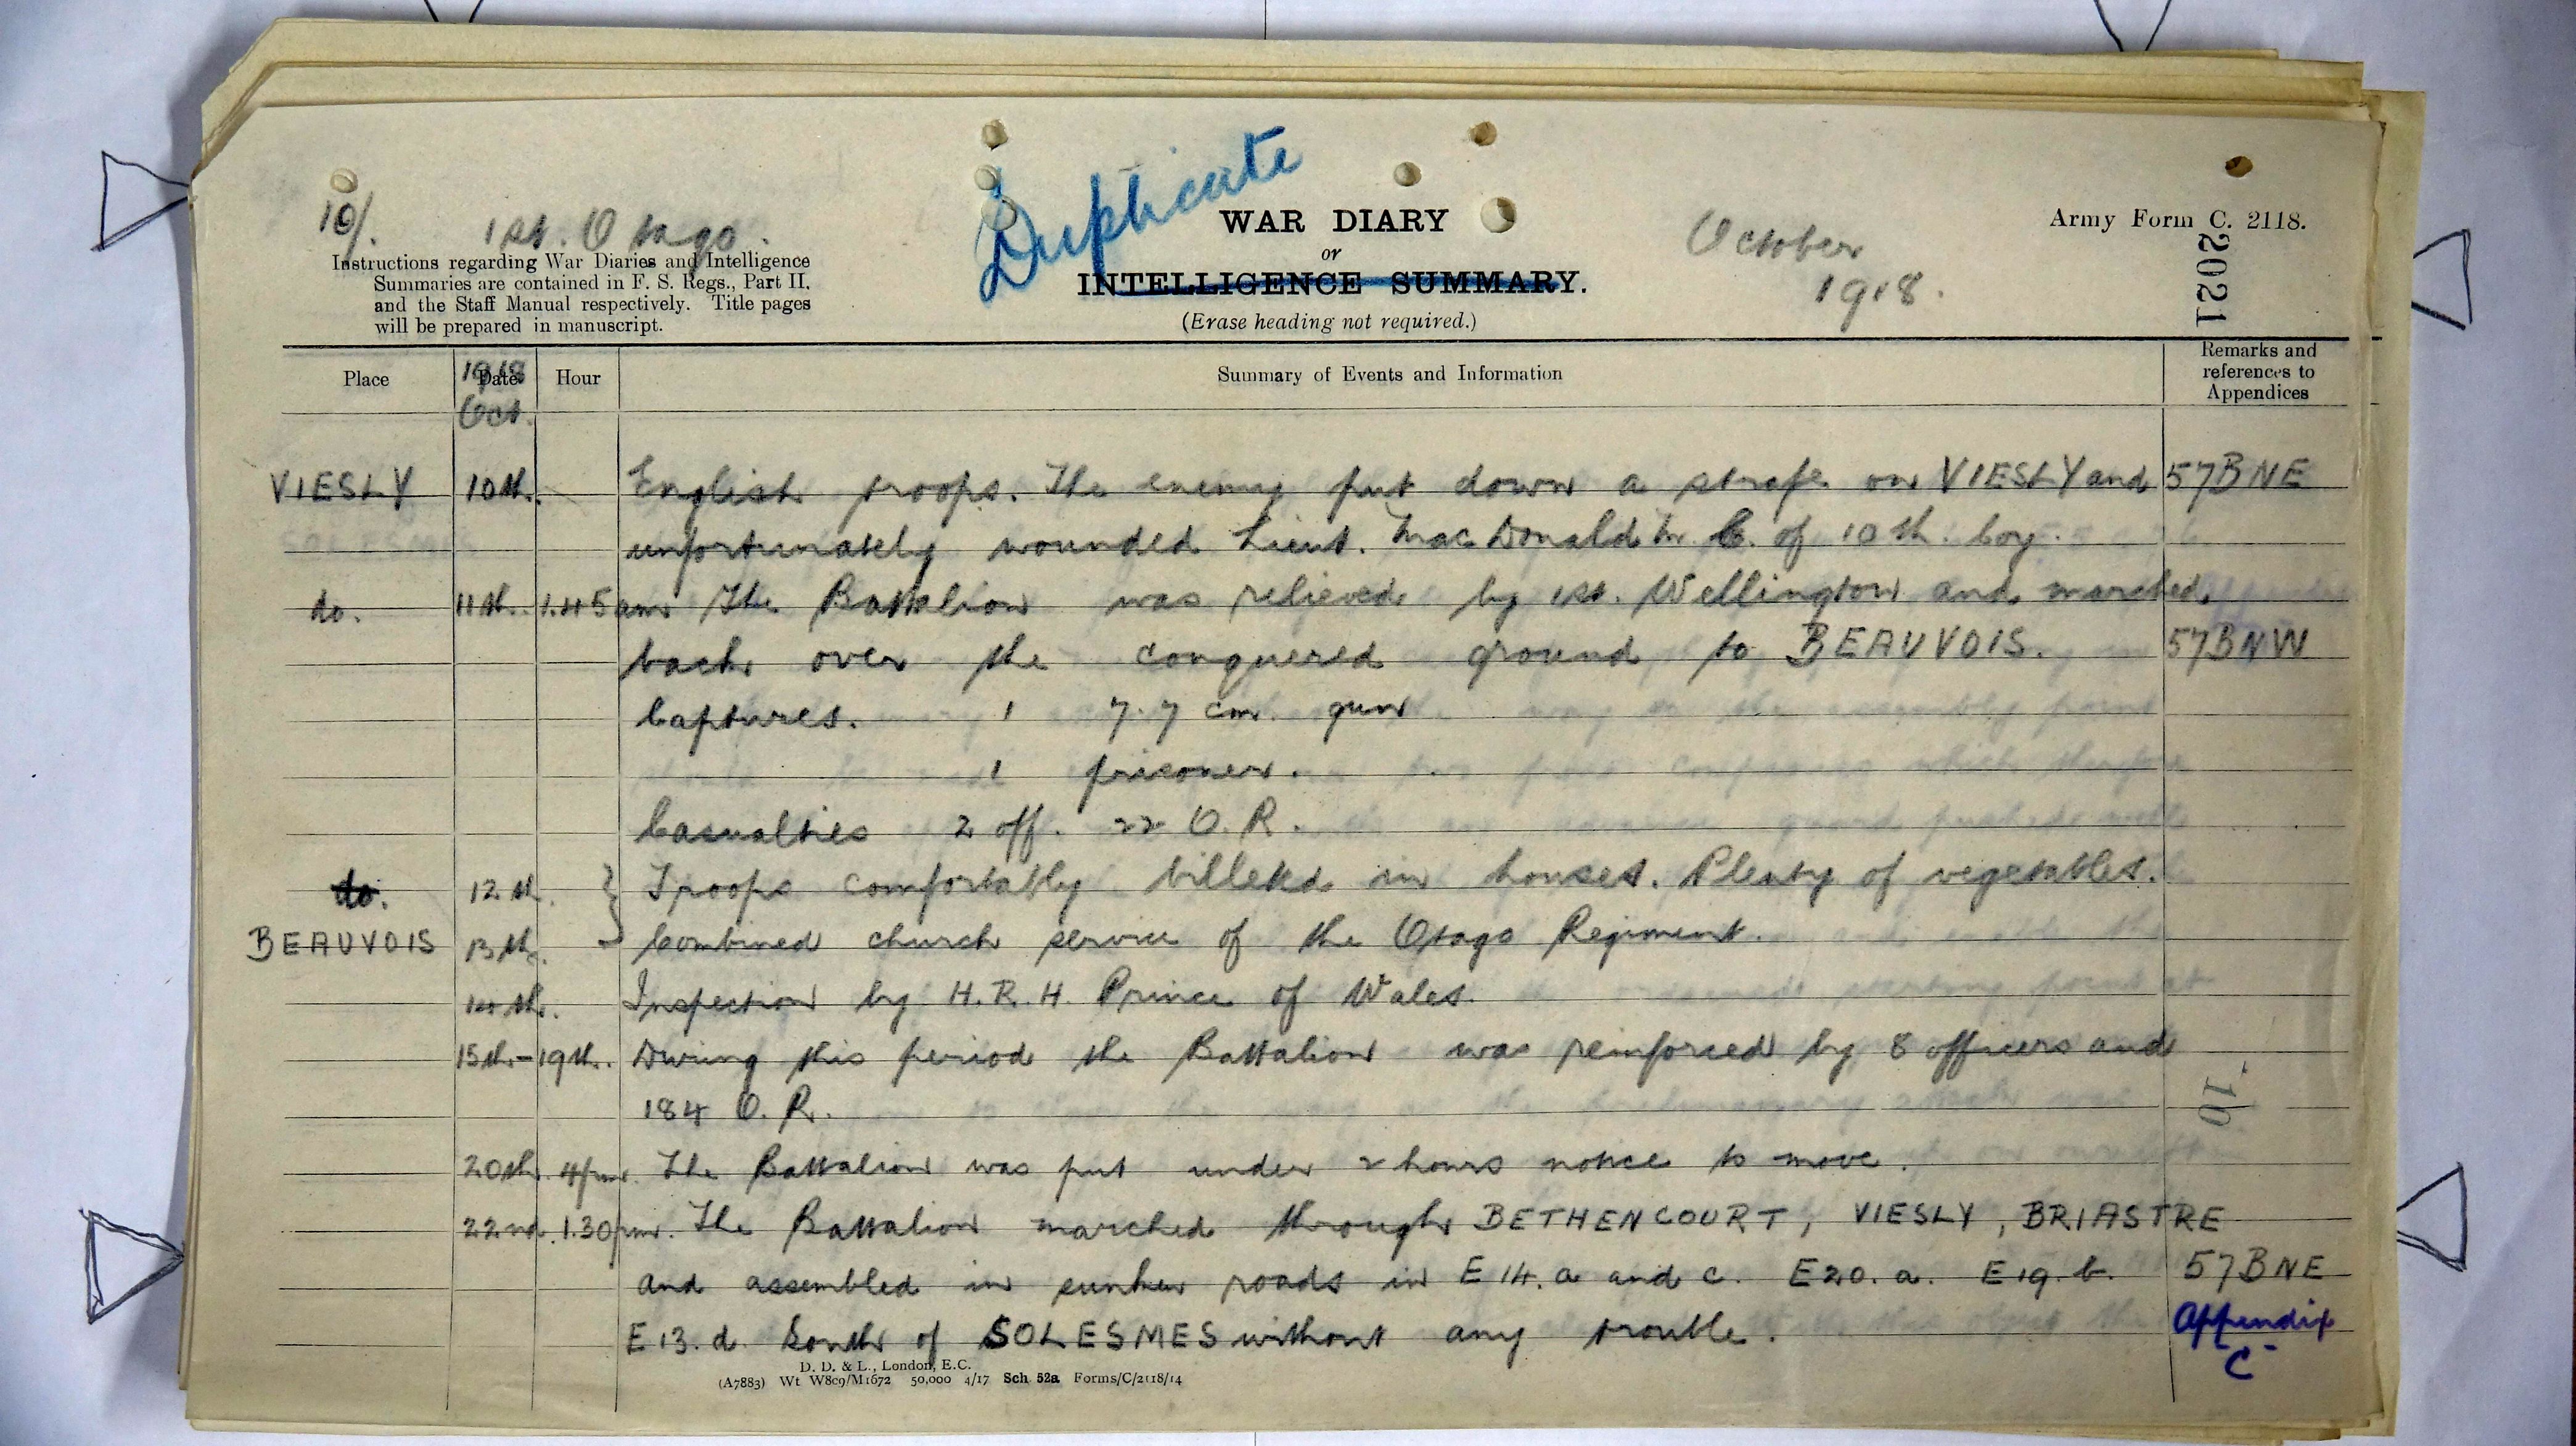 Duplicate
10/. 1st. Otago.
WAR DIARY
or
INTELLIGENCE SUMMARY.
(Erase heading not required.)
October
1918.
Army Form C. 2118.
2021
Instructions regarding War Diaries and Intelligence
Summaries are contained in F. S. Regs., Part II.
and the Staff Manual respectively. Title pages
will be prepared in manuscript.
Place Date Hour Summary of Events and Information Remarks and
references to
Appendices
1918
Oct.
VIESLY 10th. English troops. The enemy put down a strafe on VIESLY and 57B NE
unfortunately wounded Lieut. MacDonald M. C. of 10th. Coy.
do. 11th. 1.45 am The Battalion was relieved by 1st. Wellington and marched
back over the conquered ground to BEAUVOIS. 57B NW
Captures. 1 7.7 cm. gun
1 prisoner.
Casualties 2 off. 22 O.R.
do. 12th. Troops comfortably billeted in houses. Plenty of vegetables.
BEAUVOIS 13th. Combined church service of the Otago Regiment.
14th. Inspection by H.R.H. Prince of Wales.
15th.-19th. During this period the Battalion was reinforced by 8 officers and
184 O.R.
10
20th. 4pm. The Battalion was put under 2 hours notice to move.
22nd. 1.30pm. The Battalion marched through BETHENCOURT, VIESLY, BRIASTRE
and assembled in sunken roads in E 14. a and c. E20. a. E19. b. 57B NE
E 13. d South of SOLESMES without any trouble. Appendix
C
D. D. & L., London, E.C.
(A7883) Wt W8c9/M1672 50,000 4/17 Sch 52a Forms/C/2118/14